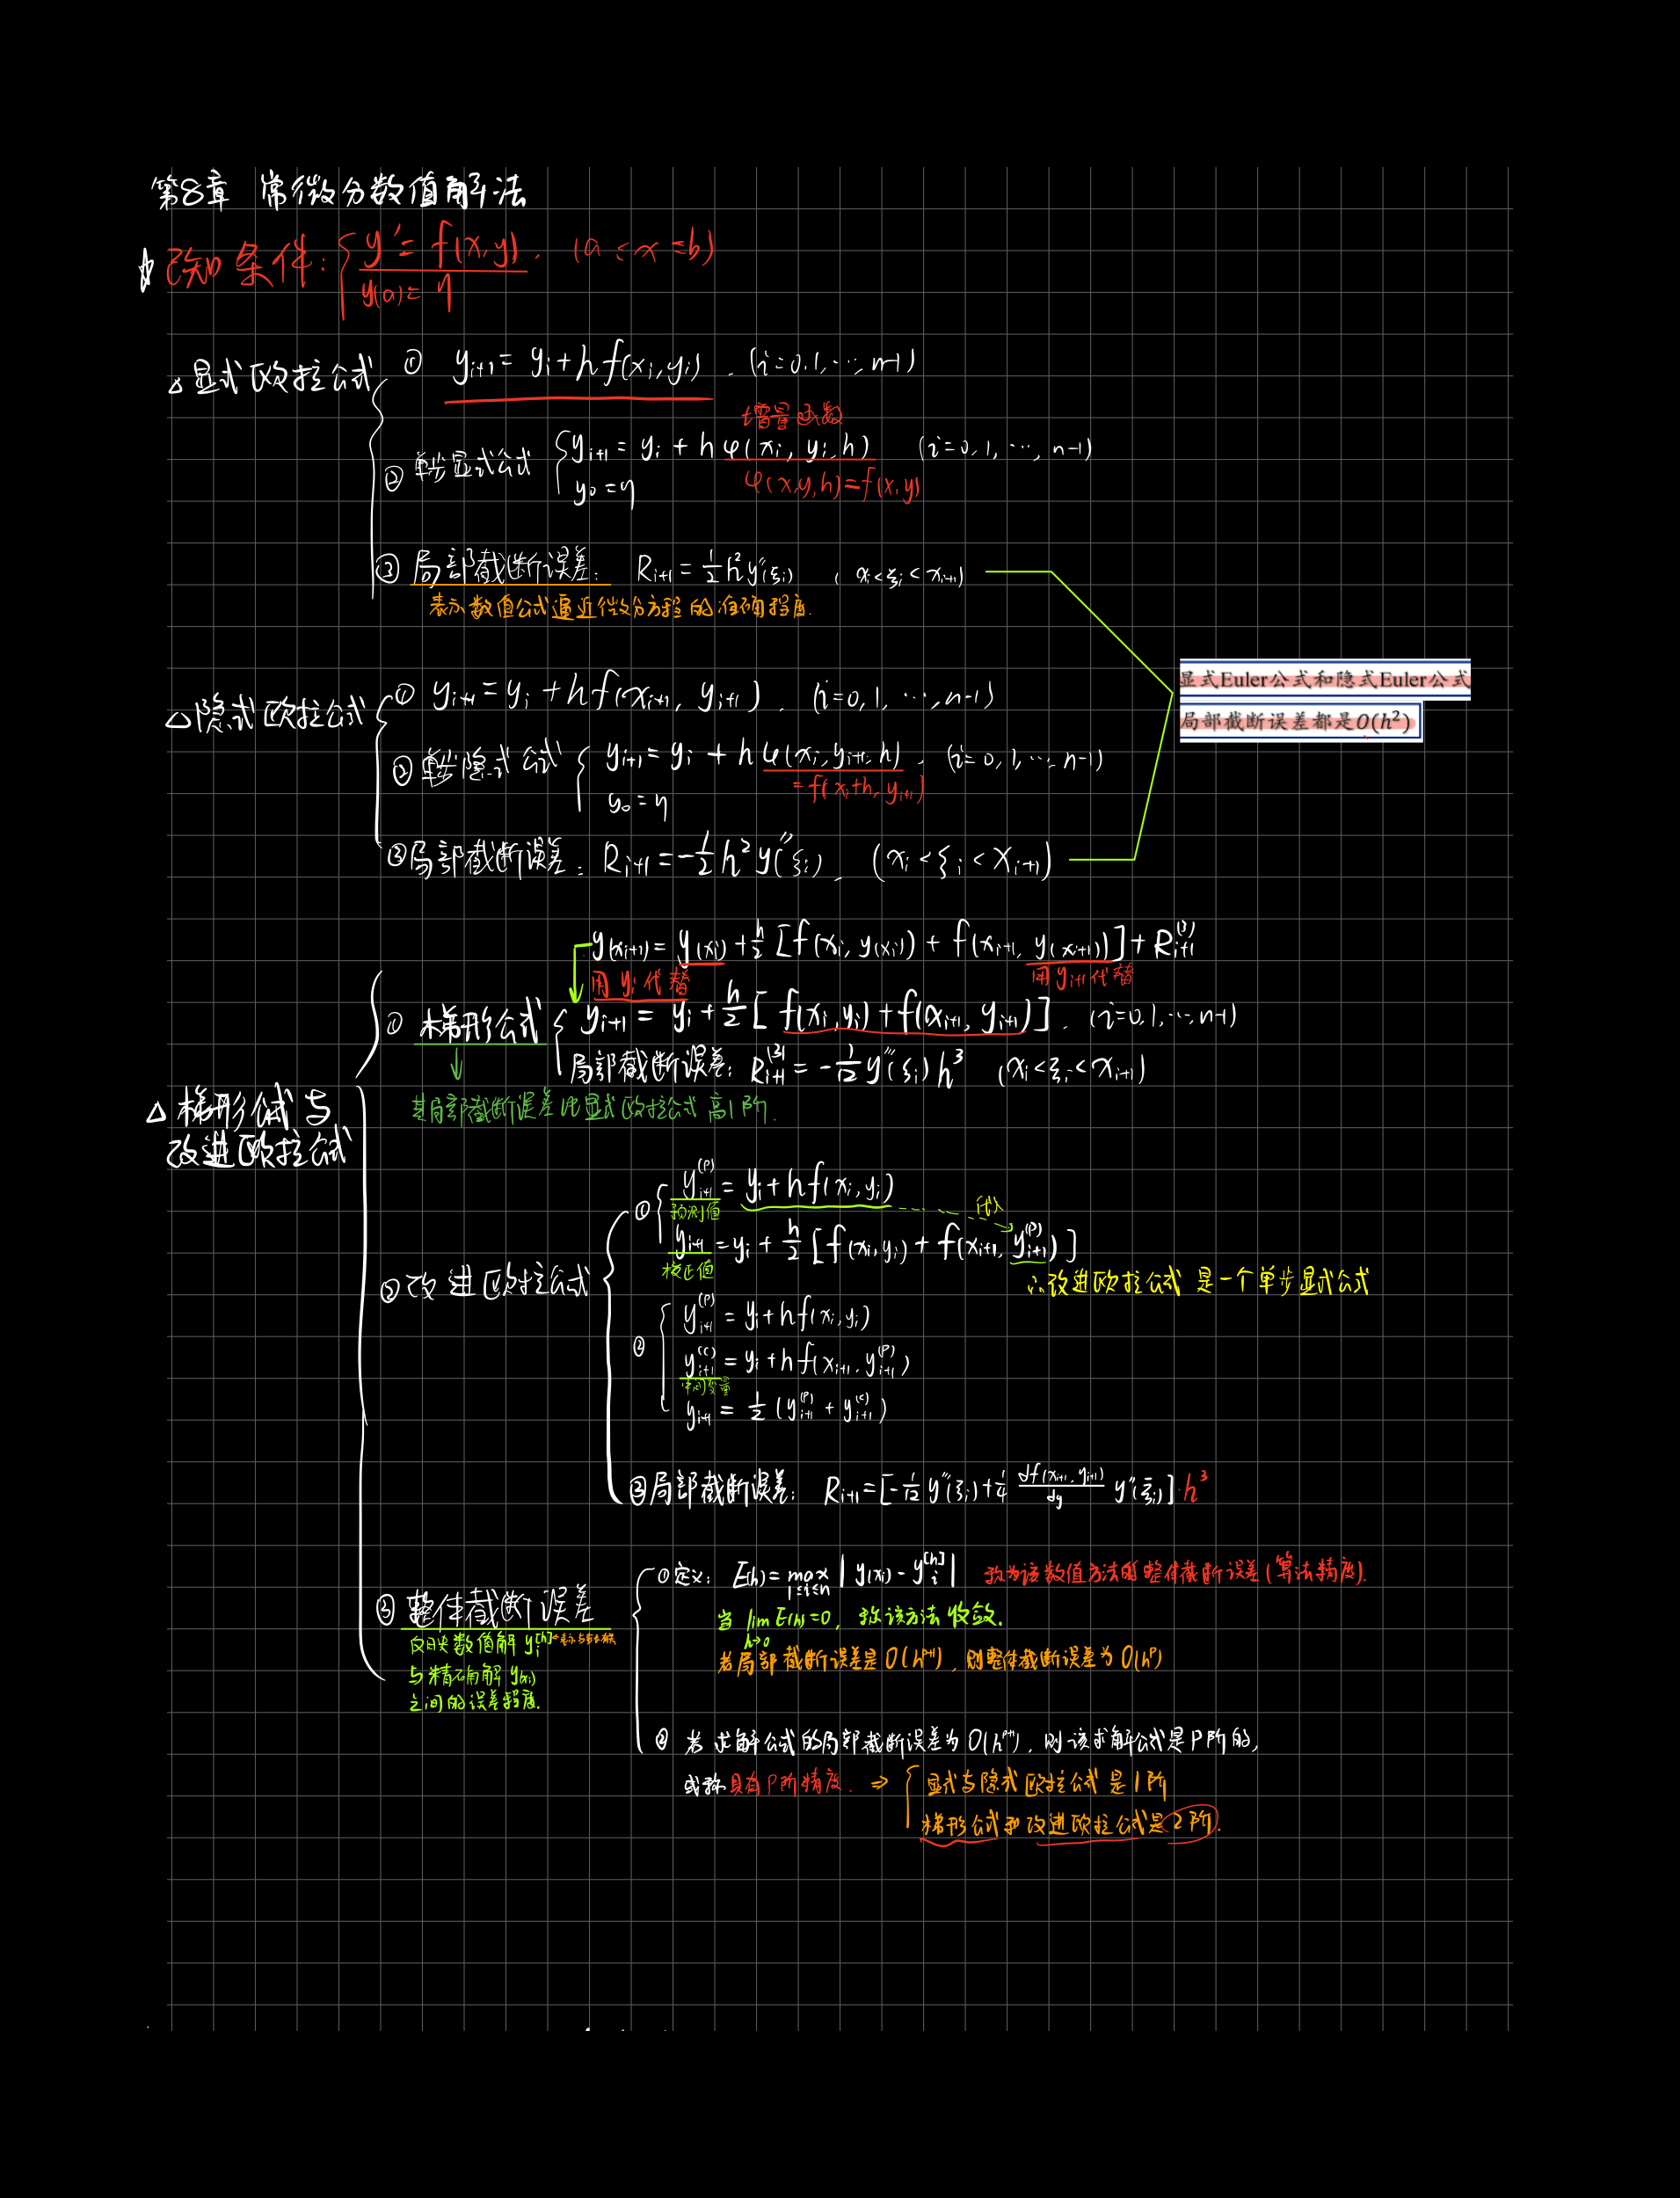 第8章 常微分数值解法
☆ 已知条件: { y' = f(x,y), (a ≤ x ≤ b)
y(a) = η
△显式欧拉公式 ① y_{i+1} = y_i + h f(x_i, y_i), (i=0,1,…,n-1)
增量函数
② 单步显式公式 { y_{i+1} = y_i + h φ(x_i, y_i, h) (i=0,1,…,n-1)
y_0 = η φ(x,y,h)=f(x,y)
③ 局部截断误差: R_{i+1} = 1/2 h² y''(ξ_i) , x_i<ξ_i<x_{i+1})
表示数值公式逼近微分方程的准确程度.
显式Euler公式和隐式Euler公式
局部截断误差都是O(h²)
△隐式欧拉公式 ① y_{i+1} = y_i + h f(x_{i+1}, y_{i+1}), (i=0,1,…,n-1)
② 单步隐式公式 { y_{i+1} = y_i + h φ(x_i, y_{i+1}, h), (i=0,1,…,n-1)
= f(x_i+h, y_{i+1})
y_0 = η
③局部截断误差: R_{i+1} = -1/2 h² y''(ξ_i), (x_i<ξ_i<x_{i+1})
y(x_{i+1}) = y(x_i) + h/2 [f(x_i, y(x_i)) + f(x_{i+1}, y(x_{i+1}))] + R_{i+1}^{(3)}
用 y_i 代替 用 y_{i+1} 代替
① 梯形公式 { y_{i+1} = y_i + h/2 [f(x_i,y_i) + f(x_{i+1}, y_{i+1})], (i=0,1,…,n-1)
局部截断误差: R_{i+1}^{(3)} = -1/12 y'''(ξ_i) h³ (x_i<ξ_i<x_{i+1})
其局部截断误差比显式欧拉公式高1阶.
△ 梯形公式与
改进欧拉公式
① { y_{i+1}^{(p)} = y_i + h f(x_i, y_i)
预测值 代入
y_{i+1} = y_i + h/2 [f(x_i,y_i) + f(x_{i+1}, y_{i+1}^{(p)})]
校正值
② 改进欧拉公式 ∴改进欧拉公式是一个单步显式公式
② { y_{i+1}^{(p)} = y_i + h f(x_i, y_i)
y_{i+1}^{(c)} = y_i + h f(x_{i+1}, y_{i+1}^{(p)})
中间变量
y_{i+1} = 1/2 (y_{i+1}^{(p)} + y_{i+1}^{(c)})
③局部截断误差: R_{i+1} = [-1/12 y'''(ξ_i) + 1/4 df(x_{i+1}, y_{i+1})/dy y''(ξ̄_i)]·h³
①定义: E(h) = max_{1≤i≤n} | y(x_i) - y_i^{[h]} | 称为该数值方法的整体截断误差(算法精度).
③ 整体截断误差 当 lim_{h→0} E(h)=0, 称该方法收敛.
反映数值解 y_i^{[h]} ←表示与步长有关
若局部截断误差是O(h^{p+1}), 则整体截断误差为O(h^p)
与精确解 y(x_i)
之间的误差程度.
② 若求解公式的局部截断误差为O(h^{p+1}), 则该求解公式是P阶的,
或称具有P阶精度. ⇒ { 显式与隐式欧拉公式是1阶
梯形公式和改进欧拉公式是2阶.